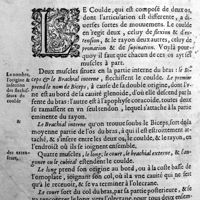 LE Coulde, qui est composé de deux os,
dont l'articulation est differente, a
diverses sortes de mouvemens. Le coulde
en son pli a ceux de flexion & d'ex-
tension, & le rayon deux autres, celuy de
pronation & de supination. Voylà pour-
quoy il faut que chacun de ces os ayt ses
muscles propres.
Deux muscles situez en la partie interne du bras : le Bi-
ceps & le Brachial interne, flechissent le coulde. Le premier
prend le nom de Biceps, à cause de sa double origine, dont l'v-
ne est au bord de la cavité glenoïde, d'où elle descend par la
fente du bras : l'autre est à l'apophyse coracoïde, toutes deux
se ramassent en vn seul ventre, lequel s'attache à la partie
eminente du rayon.
Le Brachial interne qui se trouve sous le Biceps, sort de la
moyenne partie de l'os du bras, à qui il est estroitement atta-
ché, & s'insere entre les deux os, le coulde & le rayon, à l'en-
droit où ils se joignent ensemble.
Quatre muscles, le long, le court, le brachial externe, & l'an-
goneus ou le cubital estendent le coulde.
Le long prend son origine au bord, où à la coste basse de
l'omoplate, joignant son col, où il a vne cavité qui ne sert
qu'à le recevoir, & se va terminer à l'olecrane.
Le court sort du col du bras, par la partie posterieure, & se
Le nombre,
l'origine &
l'insertion
des flechis-
seurs du
coulde
& des exten-
seurs,